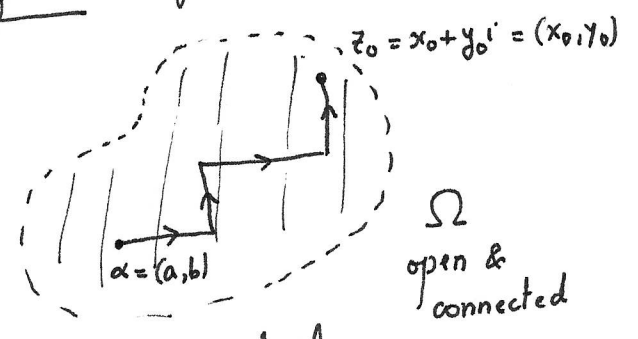 z₀ = x₀ + y₀i = (x₀, y₀)
α = (a, b)
Ω
open &
connected